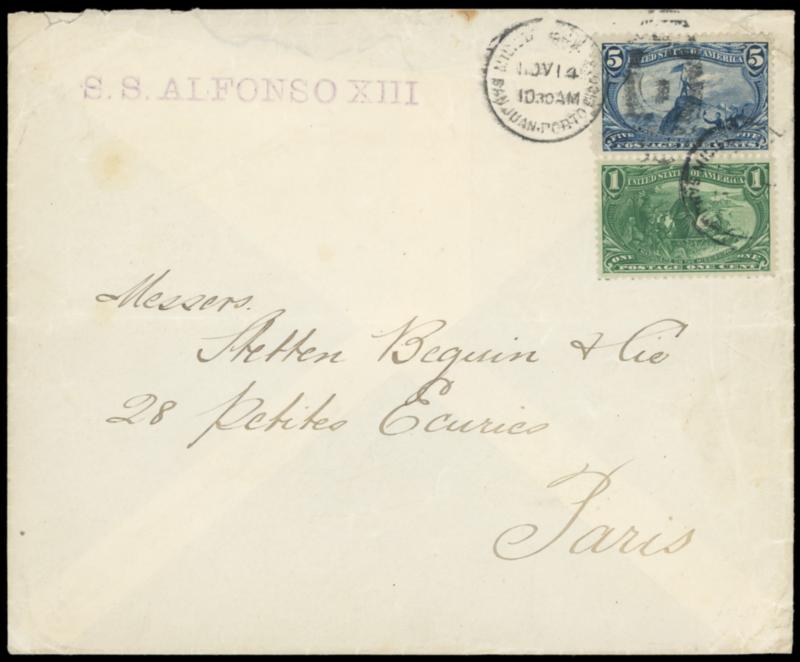 S. S. ALFONSO XIII
NOV 14
10 30 AM
SAN JUAN·PORTO RICO
5 5
UNITED STATES OF AMERICA
FIVE FIVE
POSTAGE FIVE CENTS
1 1
UNITED STATES OF AMERICA
ONE ONE
POSTAGE ONE CENT
Messers.
Stetten Beguin & Cie
28 Petites Ecuries
Paris